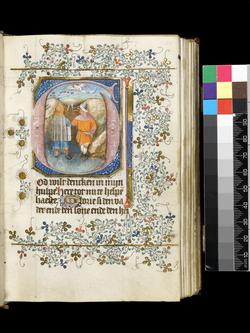 God wilt dencken in mijn
hulpe here tot mi te helpē
haeste. Glorie si den va
der ende den sone ende den hei